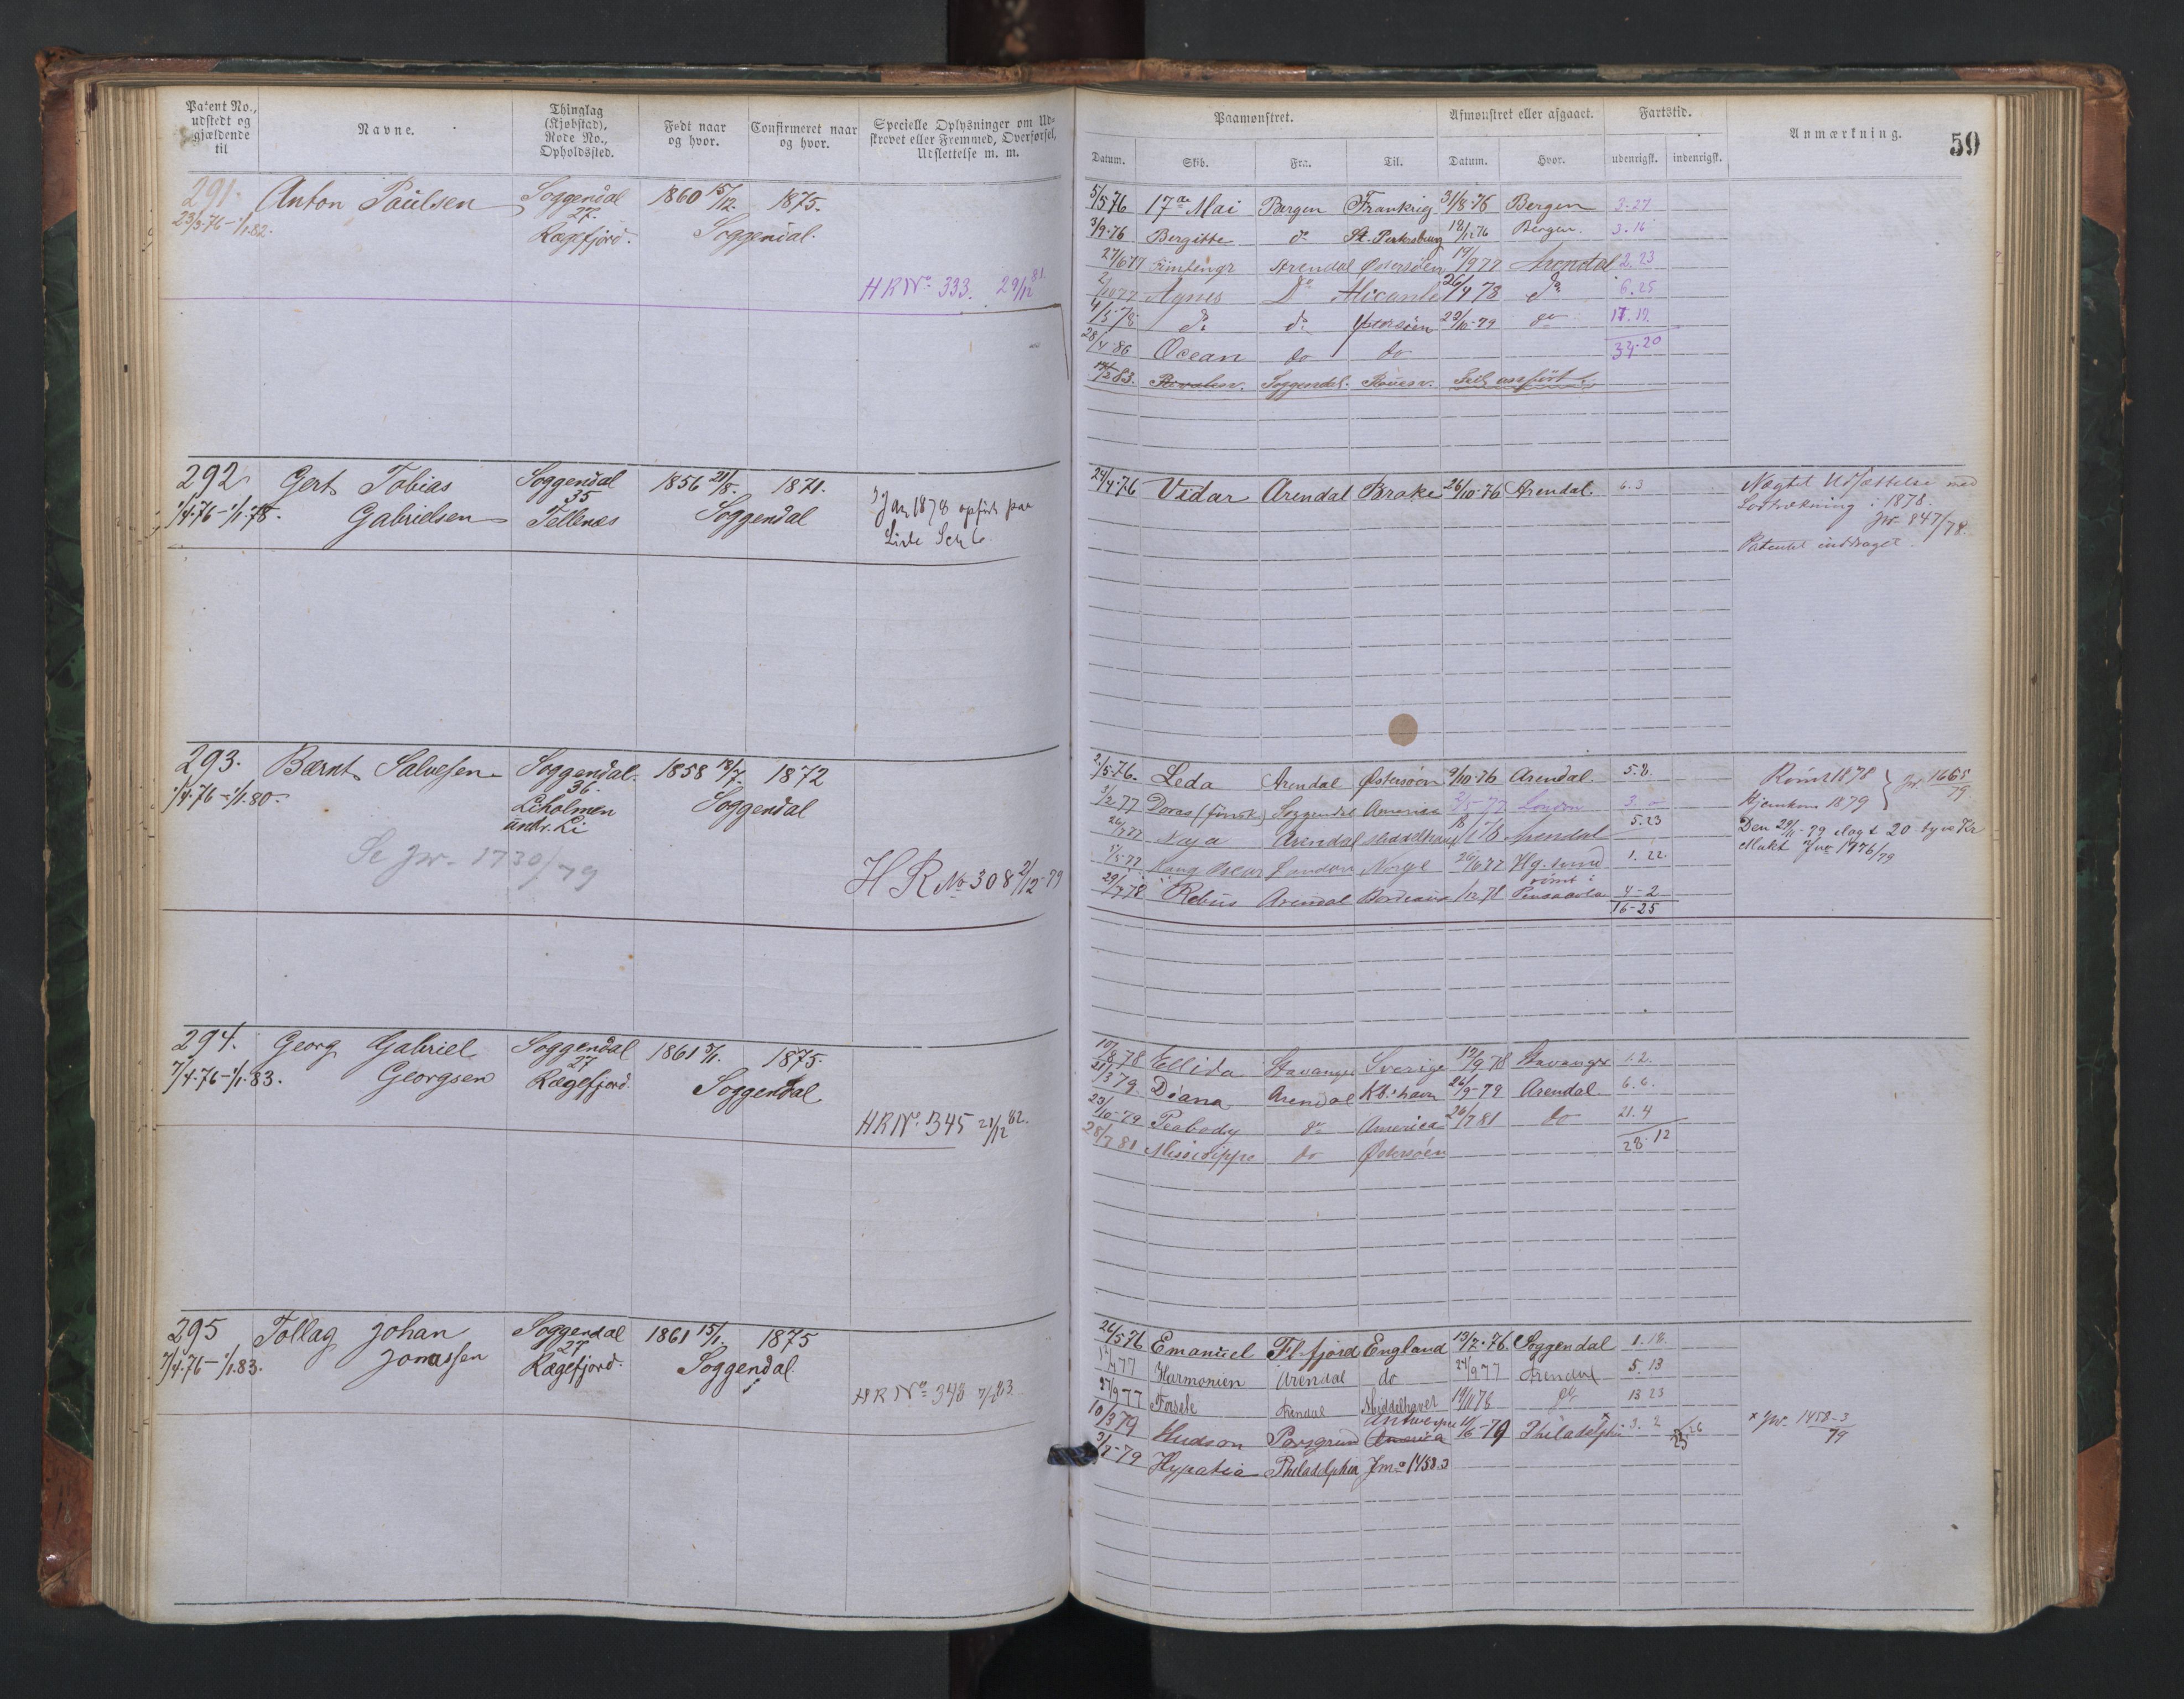 Patent No., udstedt og gjældende til
Navne.
Thinglag (Kjøbstad), Rode No., Opholdssted.
Født naar og hvor.
Confirmeret naar og hvor.
Specielle Oplysninger om Udskrevet eller Fremmed, Overførsel, Udslettelse m. m.
291. Anton Paulsen Soggendal 1860 15/12. 1875.
23/3-76-1/1.82. 27. Rægefjord. Soggendal.
HR No. 333. 29/12 81.
292. Gert Tobias Soggendal 1856 21/8. 1871.
1/4.76-1/1.78. Gabrielsen 35 Tellenes Soggendal
Jan 1878 opført paa
Liste
293. Bærnt Salvesen Soggendal. 1858 12/7. 1872
1/4.76-1/1.80. 36. Liholmen Soggendal
undr. Li
Se Jw. 1730/79
H R No 308 2/12-79
294. Georg Gabriel Soggendal 1861 5/1. 1875.
7/4.76-1/1.83. Georgsen 27 Rægefjord. Soggendal
HR No. 345 21/12 82.
295 Tollag Johan Soggendal 1861 15/1. 1875
7/4.76-1/1.83. Jonassen 27 Rægefjord. Soggendal.
HR No. 348 7/1 83
Paamønstret.
Afmønstret eller afgaaet.
Fartstid.
Anmærkning.
59
Datum. Skib. Fra. Til. Datum. Hvor. udenrigsk. indenrigsk.
5/5 76 17de Mai Bergen Frankrig 31/8-76 Bergen 3.27
3/9-76 Bergitte do St. Petersburg 76 Bergen. 3.16
27/6 77 Arendal Østersøen 19/9 77 Arendal 2.23
2/10 77 Agnes Do Alicante 26/4 78 do 6.25
4/5-78 do do Østersøen 23/10-79 do 17.19
28/4-80 Ocean do do 33.20
83. Soggendal.
24/4-76 Vidar Arendal Brake 26/10-76 Arendal. 6.3
Nægtet Udsættelse med
Lodtrækning i 1878.
Jw. 847/78.
Patentet inddraget.
2/5-76. Leda Arendal Østersøen 9/10-76 Arendal 5.8.
3/2 77 Doras (finsk) Soggendal America 3/5-77 London 3.
Naja Arendal Middelhavet Arendal 5.23
1/5 77 Kong Oscar London Norge 26/6 77 1.22.
29/7 78 Rebus Arendal Bordeaux /12 78 rømt i Pensacola 4-2
16-25
Rømt 1878
Hjemkom 1879 } Jw. 1665/79
Den 29/11-79 ilagt 20 tyve Kr
Mulkt Jw 1776/79
10/8-78 Ellida Stavanger Sverige 12/9 78 Stavanger 1.2.
21/3 79. Diana Arendal Kb.havn 26/9-79 Arendal 6.6.
23/10-79 Peabody do America 26/7 81 do 21.4
28/7 81 Missisippe do Østersøen 28-12
26/5 76 Emanuel Fl.fjord England 13/7.76. Soggendal 1.18.
77 Harmonien Arendal do 24/9 77 Arendal 5.13
27/9 77 Forsete Arendal Middelhavet 19/11 78 do 13 23
10/3 79 Hudson Porsgrund Antwerpen America 11/6-79 Philadelphi x 3.2
3/7-79 Hypatia Pheladelphia Jwno 1458.3
x Jw. 1458-3/79